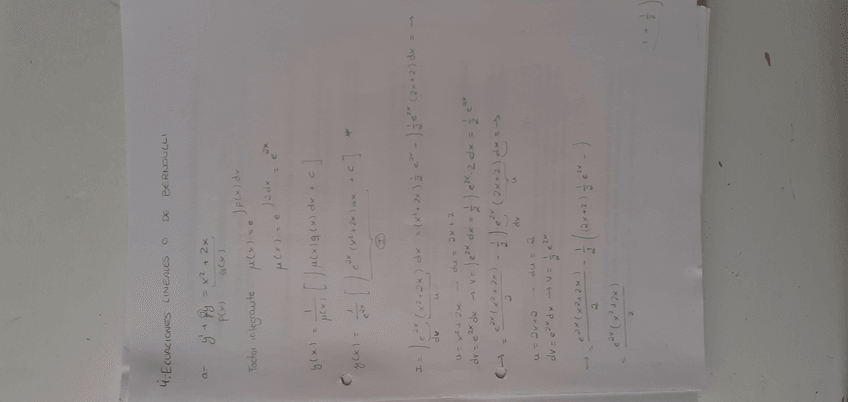 4. ECUACIONES LINEALES O DE BERNOULLI
a- y' + 2y = x² + 2x
P(x) q(x)
Factor integrante μ(x) = e^∫p(x)dx
μ(x) = e^∫2dx = e^2x
y(x) = 1/μ(x) [∫μ(x)q(x)dx + C]
y(x) = 1/e^2x [∫e^2x (x²+2x)dx + C] *
I
I = ∫e^2x (x²+2x) dx = (x²+2x) 1/2 e^2x - ∫1/2 e^2x (2x+2) dx = →
dv u
u = x²+2x → du = 2x+2
dv = e^2x dx → v = ∫e^2x dx = 1/2 ∫e^2x 2 dx = 1/2 e^2x
→ = e^2x (x²+2x)/2 - 1/2 ∫e^2x (2x+2) dx = →
dv u
u = 2x+2 → du = 2
dv = e^2x dx → v = 1/2 e^2x
→ = e^2x (x²+2x)/2 - 1/2 ((2x+2) 1/2 e^2x - ∫
= e^2x (x²+2x)/2